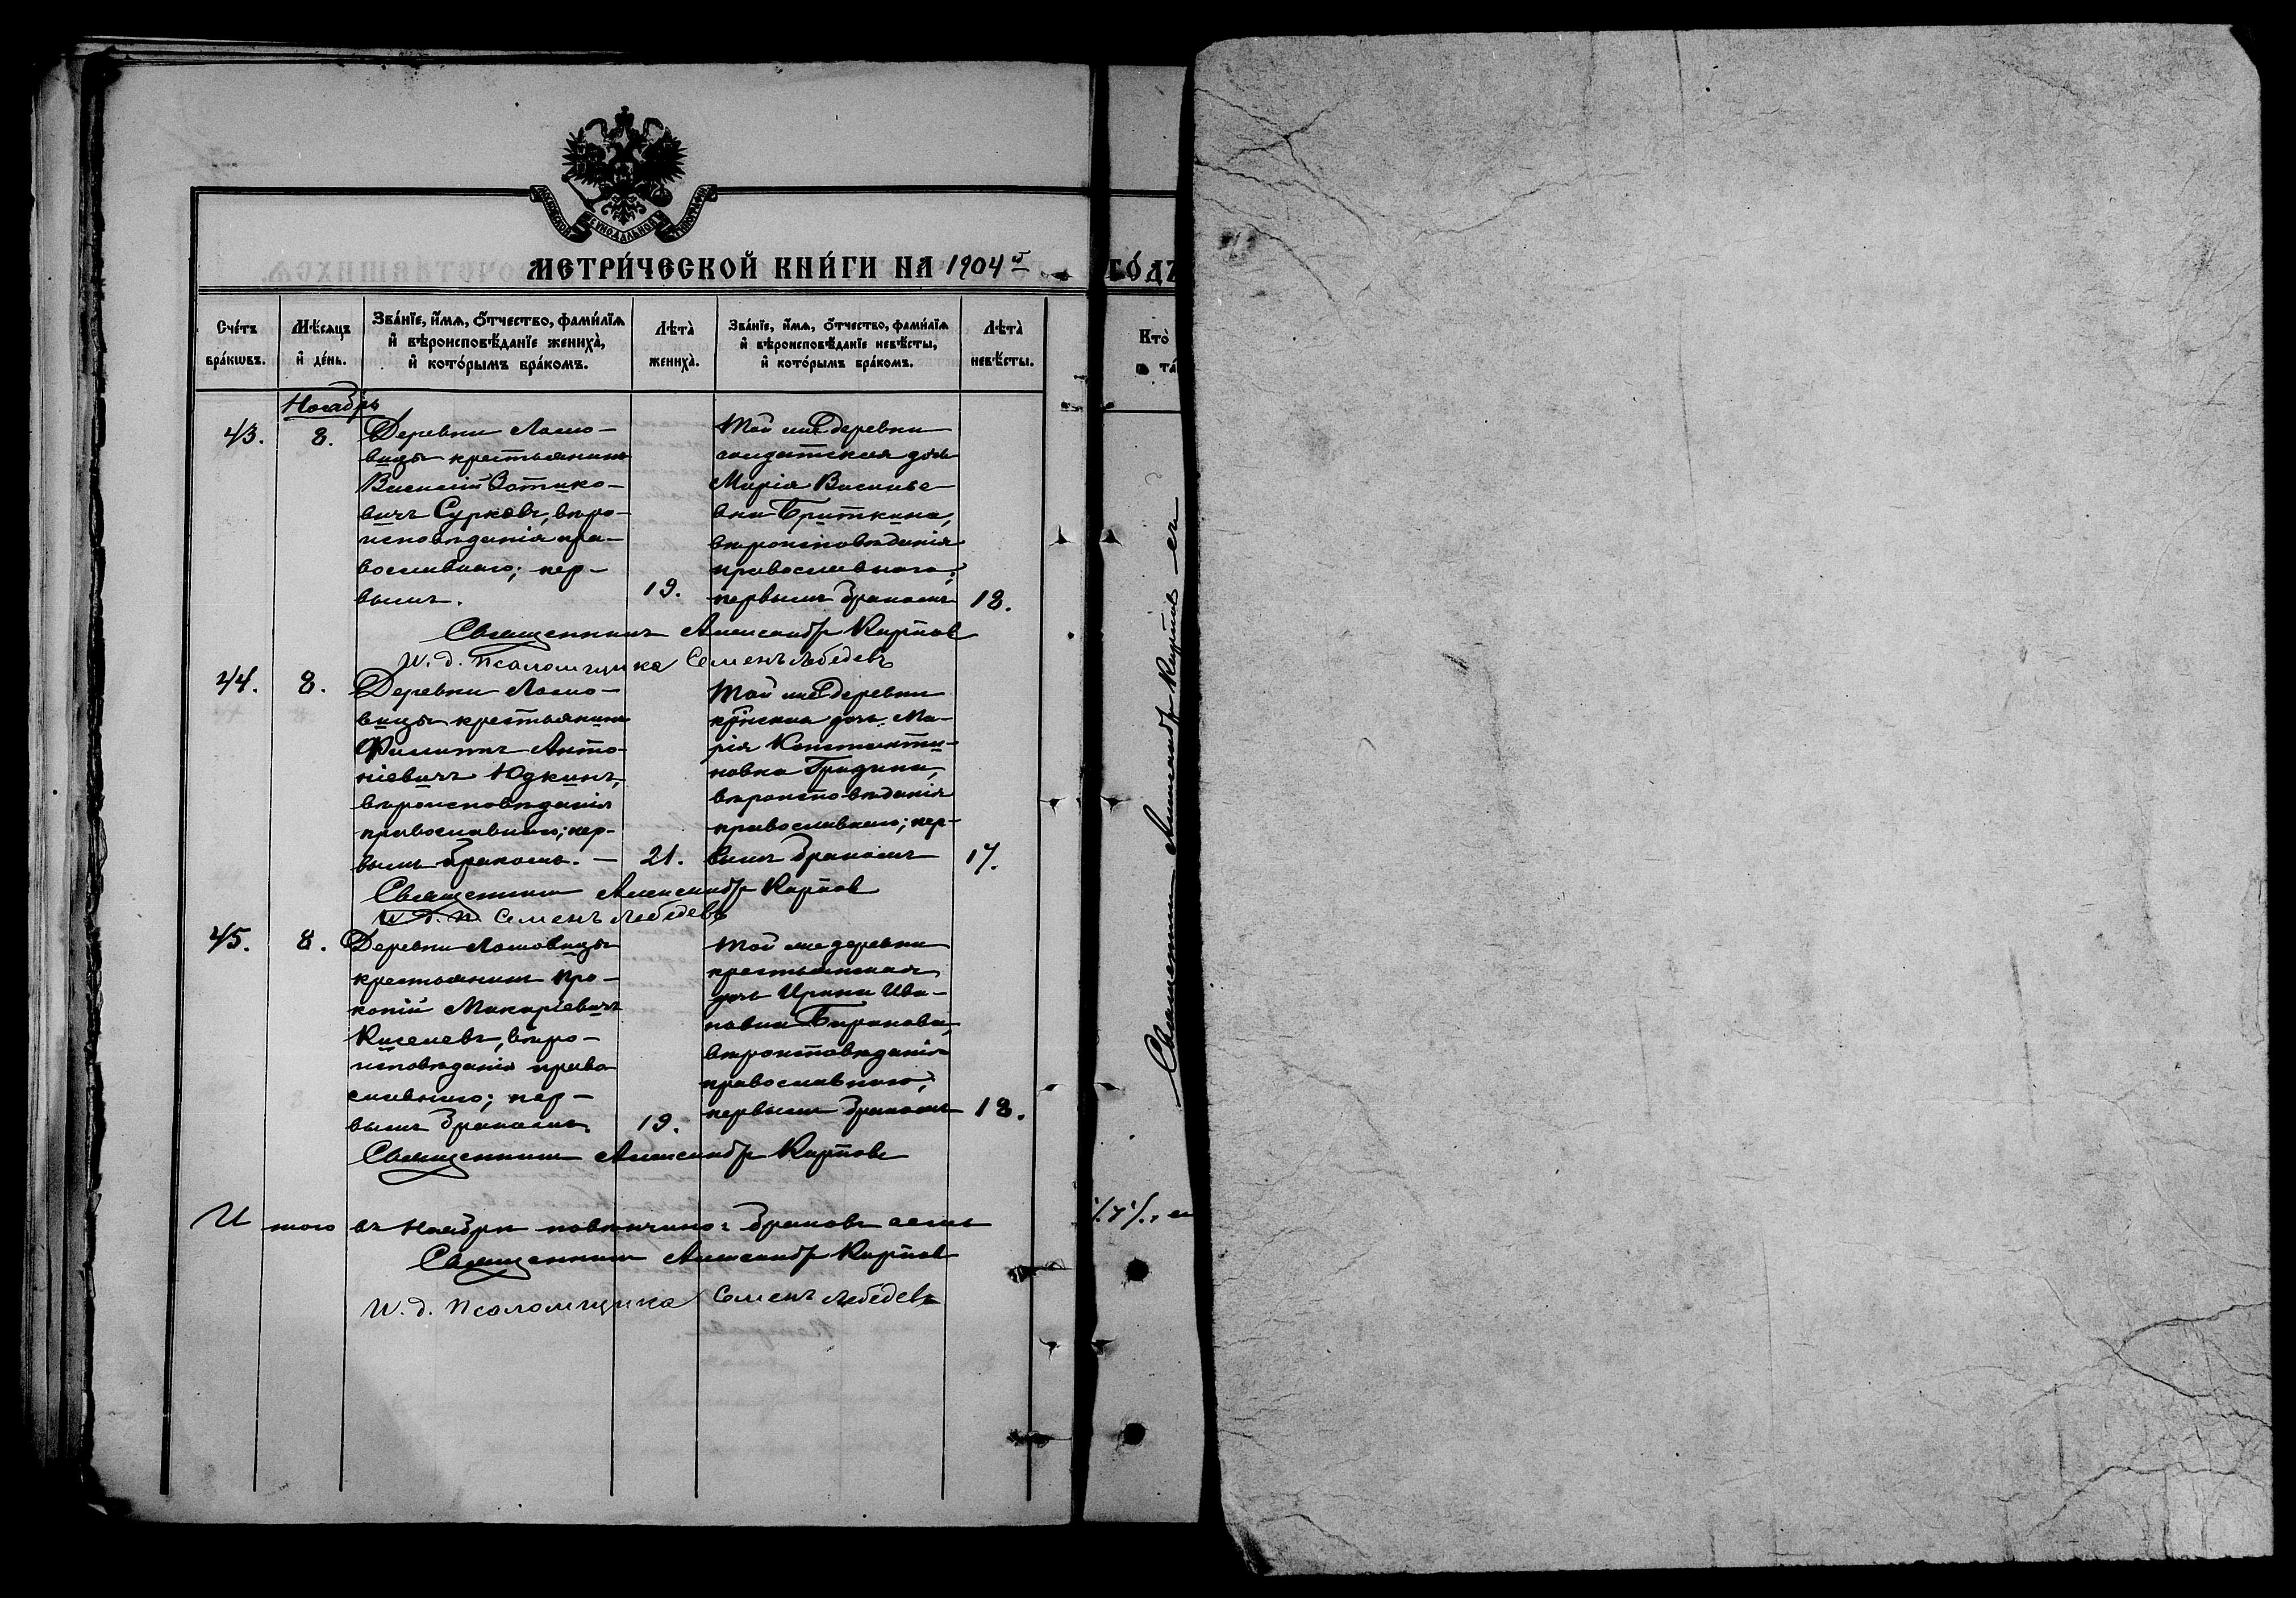 МОСКОВСКОЙ СѴНОДАЛЬНОЙ ТИПОГРАФІИ
МЕТРИ́ЧЕСКОЙ КНИ́ГИ НА 1904й ГО́ДЪ
Сче́тъ бра́кѡвъ.
Мѣ́сяцъ и҆ де́нь.
Зва́нїе, и҆́мѧ, ѻ҆́тчество, фами́лїѧ
и҆ вѣроисповѣ́данїе жениха̀,
и҆ кото́рымъ бра́комъ.
Лѣта̀ жениха̀.
Зва́нїе, и҆́мѧ, ѻ҆́тчество, фами́лїѧ
и҆ вѣроисповѣ́данїе невѣ́сты,
и҆ кото́рымъ бра́комъ.
Лѣта̀ невѣ́сты.
Кто̀
Ноябрь
43.
8.
Деревни Ламо-
вицы крестьянинъ
Василій Зотико-
вичъ Сурковъ, вѣро-
исповѣданія пра-
вославнаго; пер-
вымъ.
19.
Той же деревни
солдатская дочь
Марія Василье-
вна Бриткина,
вѣроисповѣданія
православнаго;
первымъ бракомъ
18.
Священникъ Александръ Карпов
И. д. псаломщика Семенъ Лебедевъ
44.
8.
Деревни Ламо-
вицы крестьянинъ
Филиппъ Анто-
ніевичъ Юдкинъ,
вѣроисповѣданія
православнаго; пер-
вымъ бракомъ. —
21.
Той же деревни
кр̃нская дочь Ма-
рія Константи-
новна Градина,
вѣроисповѣданія
православнаго; пер-
вымъ бракомъ
17.
Священникъ Александръ Карпов
И. д. п. Семенъ Лебедевъ
45.
8.
Деревни Ламовицы
крестьянинъ Про-
копій Макаріевичъ
Киселевъ, вѣро-
исповѣданія право
славнаго; пер-
вымъ бракомъ.
19.
Той же деревни
крестьянская
дочь Ирина Ива-
новна Баранова,
вѣроисповѣданія
православнаго;
первымъ бракомъ
18.
Священникъ Александръ Карповъ
Итого въ Ноябрѣ повѣнчано: браковъ семь
Священникъ Александръ Карпов
И. д. Псаломщика Семенъ Лебедевъ
Священникъ Александръ Карпов